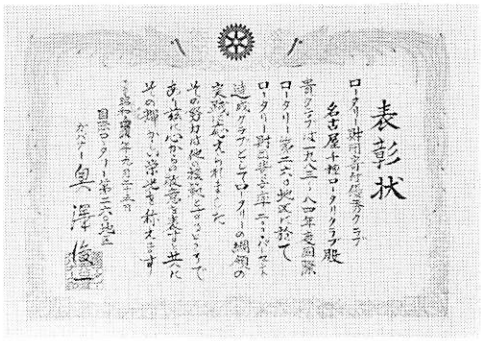 表彰状
ロータリー財団寄付優秀クラブ
名古屋千種ロータリークラブ殿
貴クラブは一九八三～八四年度国際
ロータリー第二六〇地区に於て
ロータリー財団寄与率二二〇パーセント
達成クラブとしてロータリーの綱領の
実践に応えられました
その努力は他の模範とするところで
あり茲に心から敬意を表すと共に
その輝かしい栄光を称えます
昭和 年九月二十五日
国際ロータリー第二六〇地区
ガバナー 奥澤俊一